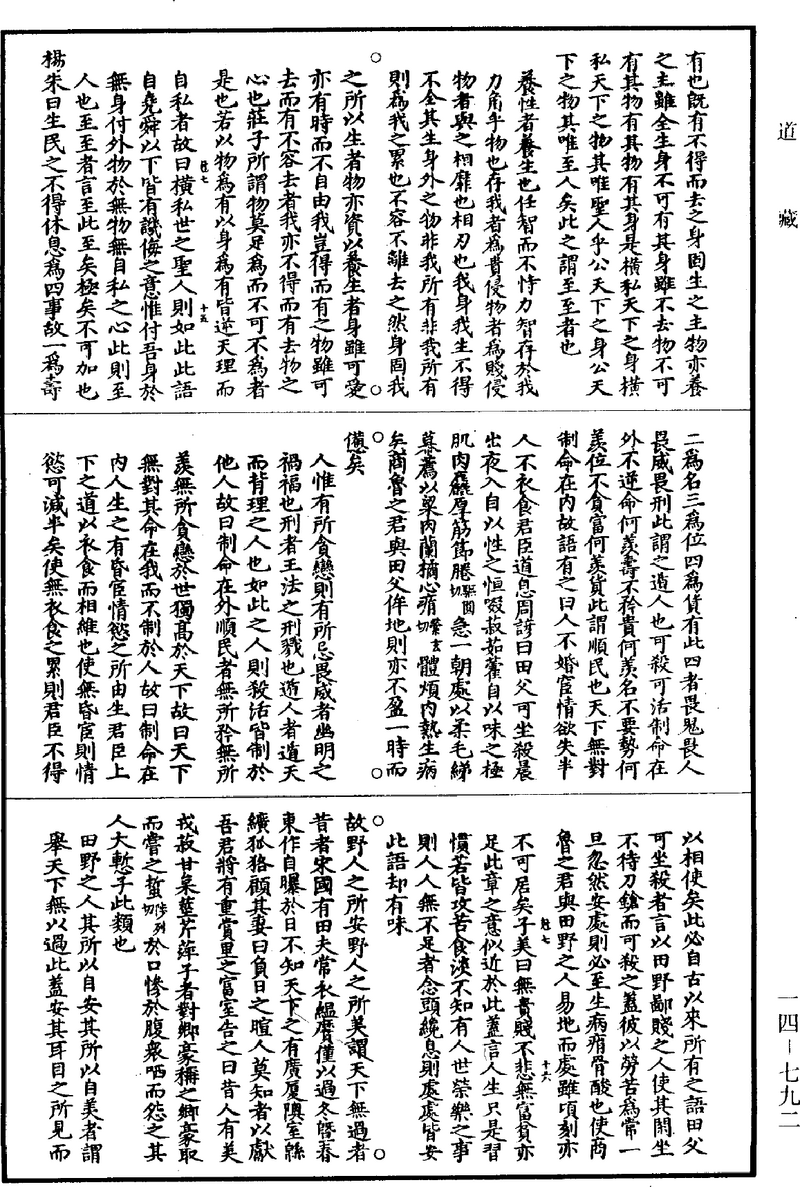 道藏
有也既有不得而去之身固生之主物亦養
之主雖全生身不可有其身雖不去物不可
有其物有其物有其身是橫私天下之身橫
私天下之物其唯聖人乎公天下之身公天
下之物其唯至人矣此之謂至至者也
養性者養生也任智而不恃力智存於我
力角乎物也存我者為貴侵物者為賤侵
物者與之相靡也相刃也我身我生不得
不全其生身外之物非我所有非我所有
則為我之累也不容不離去之然身固我
之所以生者物亦資以養生者身雖可愛
亦有時而不自由我豈得而有之物雖可
去而有不容去者我亦不得而有去物之
心也莊子所謂物莫足為而不可不為者
是也若以物為有以身為有皆逆天理而
自私者故曰橫私世之聖人則如此此語
自堯舜以下皆有譏侮之意惟付吾身於
無身付外物於無物無自私之心此則至
人也至至者言至此至矣極矣不可加也
楊朱曰生民之不得休息為四事故一為壽
二為名三為位四為貨有此四者畏鬼畏人
畏威畏刑此謂之遁人也可殺可活制命在
外不逆命何羨壽不矜貴何羨名不要勢何
羨位不貪富何羨貨此謂順民也天下無對
制命在內故語有之曰人不婚宦情欲失半
人不衣食君臣道息周諺曰田父可坐殺晨
出夜入自以性之恒啜菽茹藿自以味之極
肌肉麤厚筋節腃急一朝處以柔毛綈
幕薦以粱肉蘭橘心痟體煩內熱生病
矣商魯之君與田父侔地則亦不盈一時而
憊矣
人惟有所貪戀則有所忌畏威者幽明之
禍福也刑者王法之刑戮也遁人者遁天
而背理之人也如此之人則殺活皆制於
他人故曰制命在外順民者無所矜無所
羨無所貪戀於世獨高於天下故曰天下
無對其命在我而不制於人故曰制命在
內人生之有昏宦情慾之所由生君臣上
下之道以衣食而相維也使無昏宦則情
慾可減半矣使無衣食之累則君臣不得
以相使矣此必自古以來所有之語田父
可坐殺者言以田野鄙賤之人使其閒坐
不待刀鎗而可殺之蓋彼以勞苦為常一
旦忽然安處則必至生病痟骨酸也使商
魯之君與田野之人易地而處雖項刻亦
不可居矣子美曰無貴賤不悲無富貧亦
足此章之意似近於此蓋言人生只是習
慣若皆攻苦食淡不知有人世榮樂之事
則人人無不足者念頭纔息則處處皆安
此語却有味
故野人之所安野人之所美謂天下無過者
昔者宋國有田夫常衣縕黂僅以過冬暨春
東作自曝於日不知天下之有廣廈隩室緜
纊狐狢顧其妻曰負日之暄人莫知者以獻
吾君將有重賞里之富室告之曰昔人有美
戎菽甘枲莖芹萍子者對鄉豪稱之鄉豪取
而嘗之蜇於口慘於腹衆哂而怨之其
人大慙子此類也
田野之人其所以自安其所以自美者謂
舉天下無以過此蓋安其耳目之所見而
一四－七九二